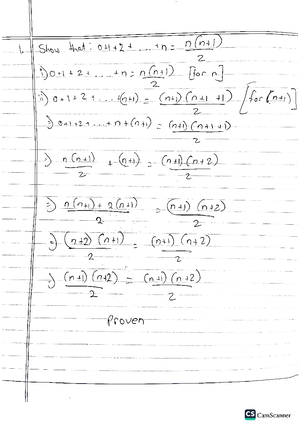 1. Show that: 0+1+2+ .... +n = n(n+1)/2
i) 0+1+2+ .... +n = n(n+1)/2 [for n]
ii) 0+1+2+ .... +(n+1) = (n+1)(n+1+1)/2 [for (n+1)]
⇒) 0+1+2+ .... +n+(n+1) = (n+1)(n+1+1)/2
⇒) n(n+1)/2 + (n+1) = (n+1)(n+2)/2
⇒) n(n+1)+2(n+1)/2 = (n+1)(n+2)/2
⇒) (n+2)(n+1)/2 = (n+1)(n+2)/2
⇒) (n+1)(n+2)/2 = (n+1)(n+2)/2
Proven
CS CamScanner